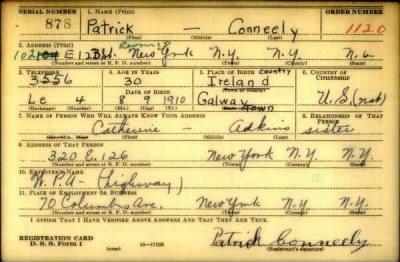 SERIAL NUMBER 1. NAME (Print) ORDER NUMBER
878 Patrick — Conneely 1120
(First) (Middle) (Last)
2. ADDRESS (Print)
E 125 St. New York N.Y. N.Y.
(Number and street or R. F. D. number) (Town) (County) (State)
3. TELEPHONE 4. AGE IN YEARS 5. PLACE OF BIRTH 6. COUNTRY OF CITIZENSHIP
3556 30 Ireland country
DATE OF BIRTH (Town or county)
Le 4 8 9 1910 Galway town U.S. (nat)
(Exchange) (Number) (Mo.) (Day) (Yr.) (State or country)
7. NAME OF PERSON WHO WILL ALWAYS KNOW YOUR ADDRESS 8. RELATIONSHIP OF THAT PERSON
Catherine — Adkins sister
(Mr., Mrs., Miss) (First) (Middle) (Last)
9. ADDRESS OF THAT PERSON
320 E. 126 New York N.Y. N.Y.
(Number and street or R. F. D. number) (Town) (County) (State)
10. EMPLOYER'S NAME
W.P.A — (highway)
11. PLACE OF EMPLOYMENT OR BUSINESS
70 Columbus Ave. New York N.Y. N.Y.
(Number and street or R. F. D. number) (Town) (County) (State)
I AFFIRM THAT I HAVE VERIFIED ABOVE ANSWERS AND THAT THEY ARE TRUE.
REGISTRATION CARD
D. S. S. Form 1 (over) 16—17105 Patrick Conneely
(Registrant's signature)